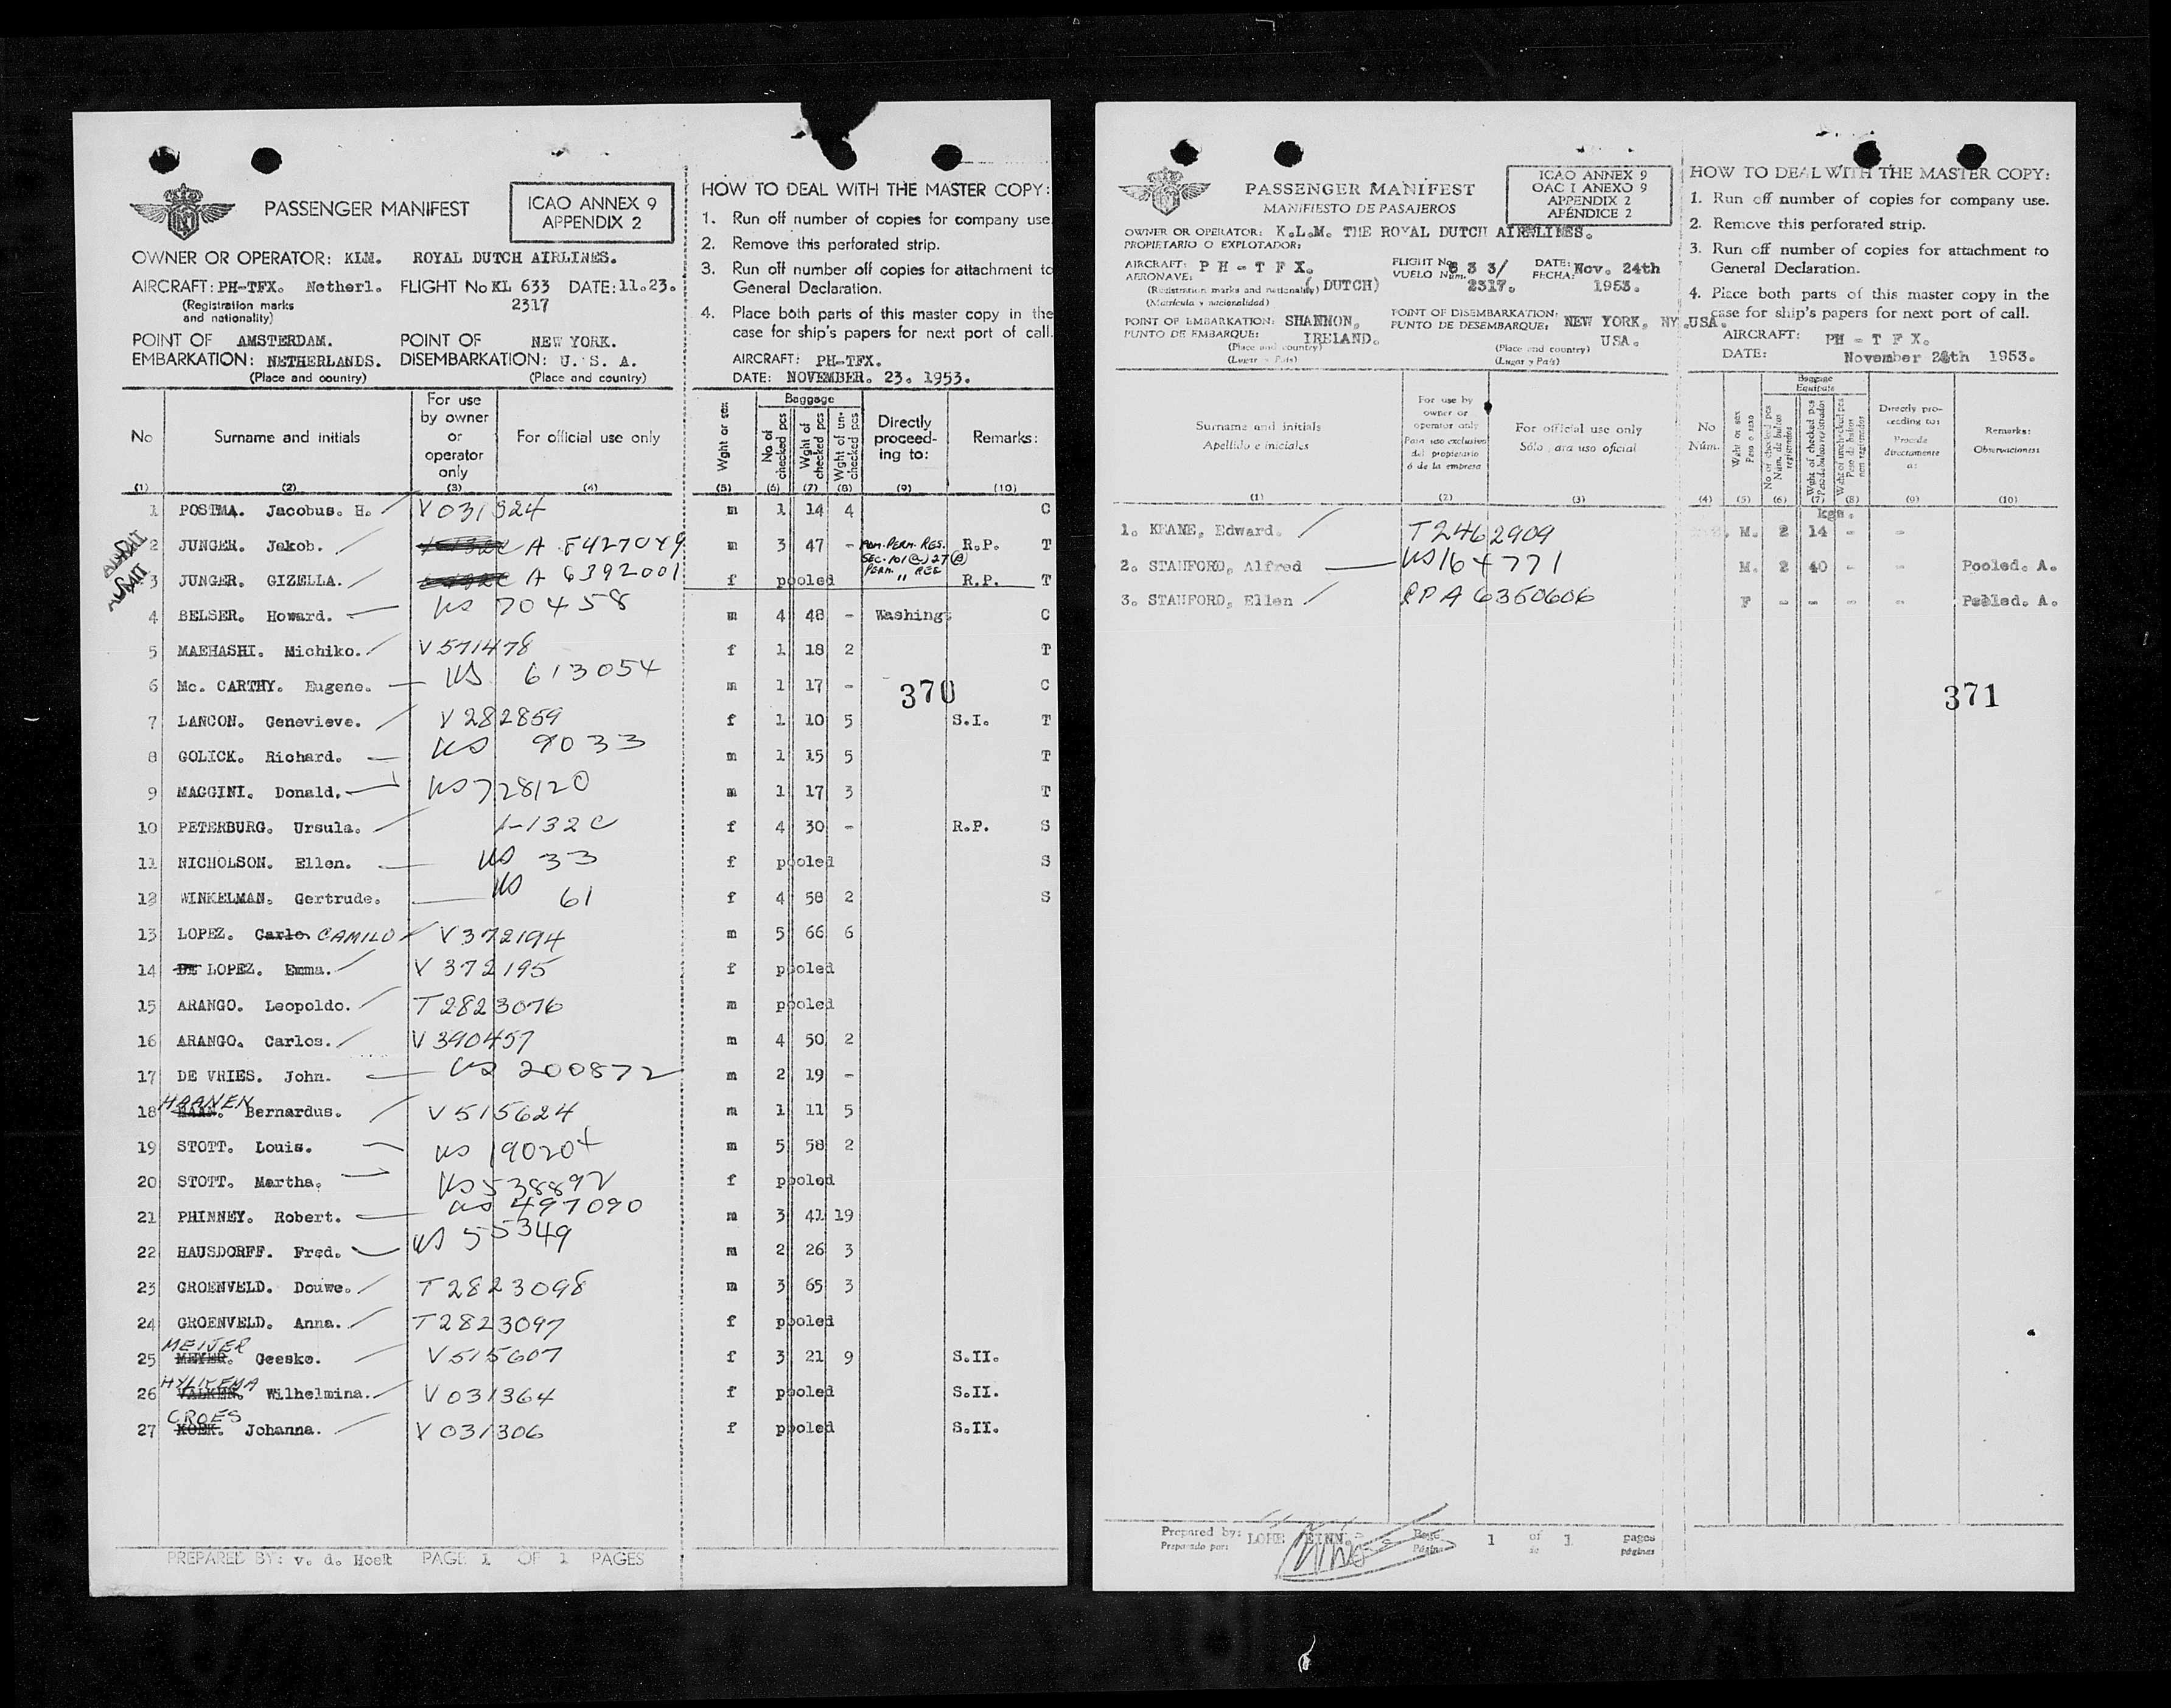 PASSENGER MANIFEST
ICAO ANNEX 9
APPENDIX 2
OWNER OR OPERATOR: KLM. ROYAL DUTCH AIRLINES.
AIRCRAFT: PH-TFX. Netherl. FLIGHT No KL 633 DATE: 11.23.
(Registration marks and nationality) 2317
POINT OF EMBARKATION: AMSTERDAM. NETHERLANDS. POINT OF DISEMBARKATION: NEW YORK. U. S. A.
(Place and country) (Place and country)
HOW TO DEAL WITH THE MASTER COPY:
1. Run off number of copies for company use.
2. Remove this perforated strip.
3. Run off number off copies for attachment to
General Declaration.
4. Place both parts of this master copy in the
case for ship's papers for next port of call.
AIRCRAFT: PH-TFX.
DATE: NOVEMBER. 23. 1953.
No Surname and initials For use by owner or operator only For official use only Wght or sex Baggage No of checked pcs Wght of checked pcs Wght of un-checked pcs Directly proceed-ing to: Remarks:
(1) (2) (3) (4) (5) (6) (7) (8) (9) (10)
1 POSTMA. Jacobus. H. V 031324 m 1 14 4 C
2 JUNGER. Jakob. A 5427049 m 3 47 - ADM. PERM. RES. R.P. T
SEC. 101(a)27(B)
3 JUNGER. GIZELLA. A 6392001 f pooled PERM. " RES R.P. T
4 BELSER. Howard. US 70458 m 4 48 - Washing. C
5 MAEHASHI. Michiko. V 571478 f 1 18 2 T
6 Mc. CARTHY. Eugene. US 613054 m 1 17 - C
370
7 LANCON. Genevieve. V 282859 f 1 10 5 S.I. T
8 GOLICK. Richard. US 9033 m 1 15 5 T
9 MAGGINI. Donald. US 728120 m 1 17 3 T
10 PETERBURG. Ursula. 1-132C f 4 30 - R.P. S
11 NICHOLSON. Ellen. US 33 f pooled S
12 WINKELMAN. Gertrude. US 61 f 4 58 2 S
13 LOPEZ. Carlo. CAMILO V 372194 m 5 66 6
14 DE LOPEZ. Emma. V 372195 f pooled
15 ARANGO. Leopoldo. T 2823076 m pooled
16 ARANGO. Carlos. V 390457 m 4 50 2
17 DE VRIES. John. US 200872 m 2 19 -
18 HAANEN Bernardus. V 515624 m 1 11 5
19 STOTT. Louis. US 190204 m 5 58 2
20 STOTT. Martha. US 538892 f pooled
21 PHINNEY. Robert. US 497090 m 3 41 19
22 HAUSDORFF. Fred. US 55349 m 2 26 3
23 GROENVELD. Douwe. T 2823098 m 3 65 3
24 GROENVELD. Anna. T 2823097 f pooled
MEIJER
25 MEYER. Geeske. V 515607 f 3 21 9 S.II.
HYLKEMA
26 VALKEN. Wilhelmina. V 031364 f pooled S.II.
CROES
27 KOEK. Johanna. V 031306 f pooled S.II.
PREPARED BY: v. d. Hoek PAGE 1 OF 1 PAGES
PASSENGER MANIFEST
MANIFIESTO DE PASAJEROS
ICAO ANNEX 9
OACI ANEXO 9
APPENDIX 2
APÉNDICE 2
OWNER OR OPERATOR: K.L.M. THE ROYAL DUTCH AIRLINES.
PROPIETARIO O EXPLOTADOR:
AIRCRAFT: PH-TFX. FLIGHT No. 633/ DATE: Nov. 24th
AERONAVE: (DUTCH) VUELO Núm. 2317. FECHA: 1953.
(Registration marks and nationality)
(Matrícula y nacionalidad)
POINT OF EMBARKATION: SHANNON, POINT OF DISEMBARKATION: NEW YORK, NY.USA.
PUNTO DE EMBARQUE: IRELAND. PUNTO DE DESEMBARQUE: USA.
(Place and country) (Place and country)
(Lugar y País) (Lugar y País)
HOW TO DEAL WITH THE MASTER COPY:
1. Run off number of copies for company use.
2. Remove this perforated strip.
3. Run off number of copies for attachment to
General Declaration.
4. Place both parts of this master copy in the
case for ship's papers for next port of call.
AIRCRAFT: PH - T F X.
DATE: November 24th 1953.
Surname and initials Apellido e iniciales For use by owner or operator only Para uso exclusivo del propietario ó de la empresa For official use only Sólo para uso oficial No Núm. Wght or sex Peso o sexo Baggage Equipaje Directly pro-ceeding to: Procede directamente a: Remarks: Observaciones:
(1) (2) (3) (4) (5) (6) (7) (8) (9) (10)
kgs.
1. KEANE, Edward. T2462909 M. 2 14 - -
2. STANFORD, Alfred US164771 M. 2 40 - - Pooled. A.
3. STANFORD, Ellen RPA 6350606 F - - - - Pooled. A.
371
Prepared by: Page 1 of 1 pages
Preparado por: Página de páginas